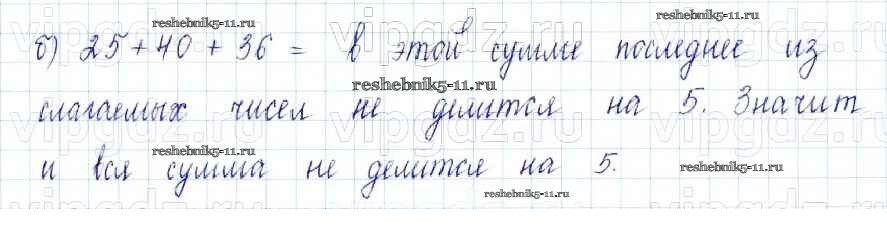 reshebnik5-11.ru
б) 25 + 40 + 36 = в этой сумме последнее из
reshebnik5-11.ru
слагаемых чисел не делится на 5. Значит
vipgdz.ru vipgdz.ru
и вся сумма не делится на 5.
reshebnik5-11.ru reshebnik5-11.ru
reshebnik5-11.ru